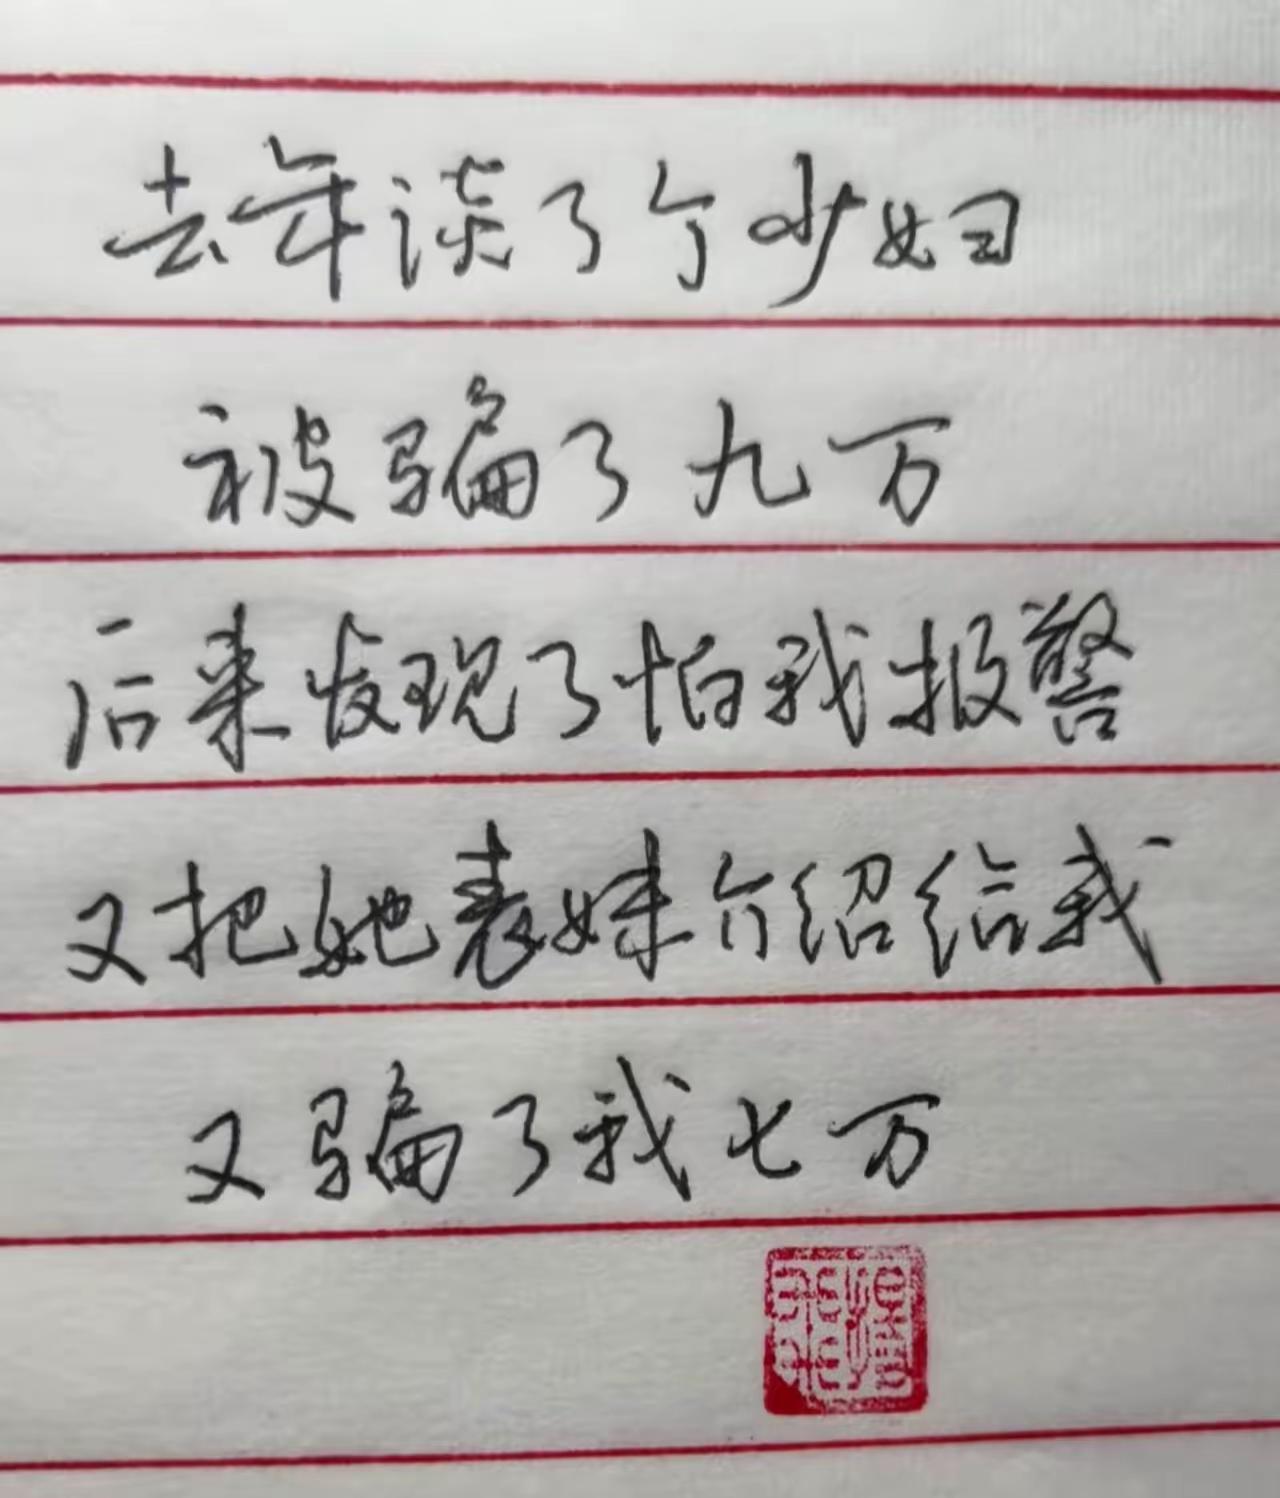 去年谈了个少妇
被骗了九万
后来发现了怕我报警
又把她表妹介绍给我
又骗了我七万